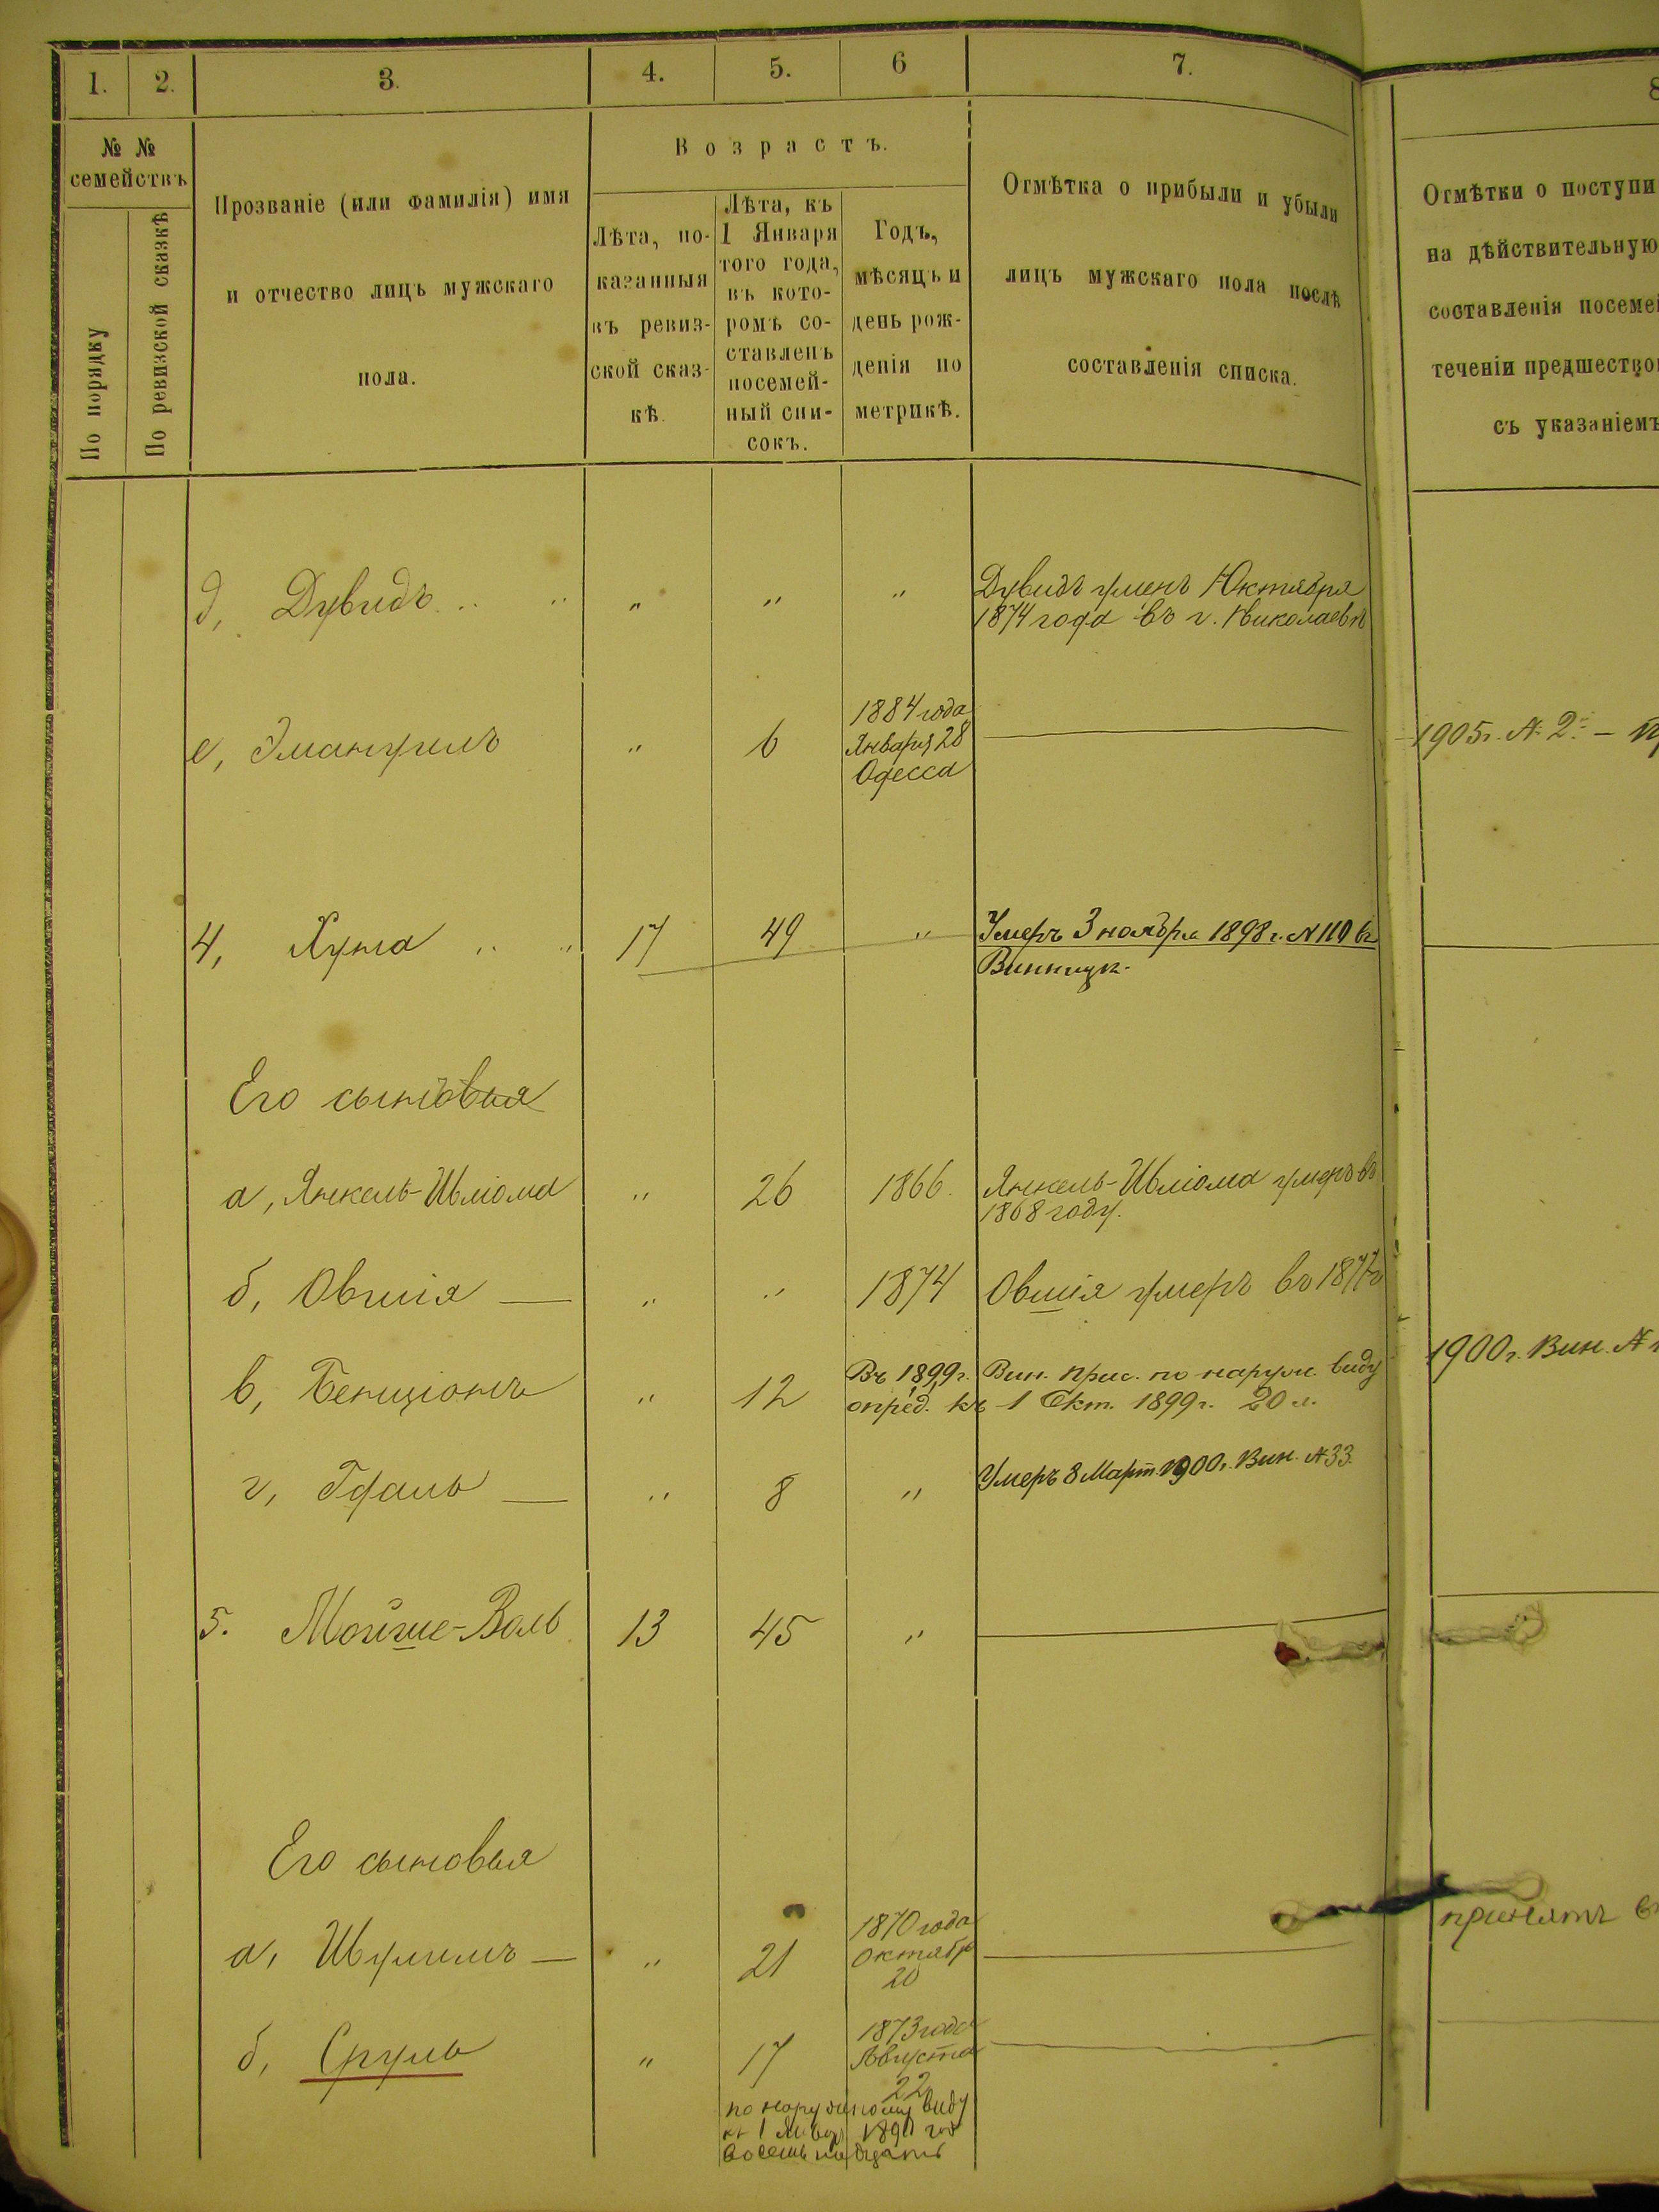 1. 2. 3. 4. 5. 6 7. 8
№ №
семействъ
По порядку
По ревизской сказкѣ
Прозваніе (или фамилія) имя
и отчество лицъ мужскаго
пола.
Возрастъ.
Лѣта, по-
казанныя
въ ревиз-
ской сказ-
кѣ.
Лѣта, къ
1 Января
того года,
въ кото-
ромъ со-
ставленъ
посемей-
ный спи-
сокъ.
Годъ,
мѣсяцъ и
день рож-
денія по
метрикѣ.
Отмѣтка о прибыли и убыли
лицъ мужскаго пола послѣ
составленія списка.
Отмѣтки о поступи
на дѣйствительную
составленія посемей
теченіи предшество
съ указаніемъ
д, Дувидъ " " " " "
Дувидъ умеръ Октября
1874 года въ г. Николаевѣ
е, Эмануилъ " 6
1884 года
Января 28
Одесса
1905 г. № 2 –
4, Хуна " " 17 49 "
Умеръ 3 ноября 1898 г. № 110 въ
Винницк.
Его сыновья
а, Янкель-Шліома " 26 1866.
Янкель-Шліома умеръ въ
1868 году.
б, Овшія — " " 1874 Овшія умеръ въ 1877 г
в, Бенціонъ " 12
Въ 1899 г. Вин. прис. по наружн. виду
опред. къ 1 Окт. 1899 г. 20 л.
1900 г. Вин. №
г, Гдаль — " 8 " Умеръ 8 Март. 1900 г. Вин. № 33.
5. Мойше-Воль 13 45 "
Его сыновья
а, Шулимъ — " 21
1870 года
Октябр
20
принятъ
б, Сруль " 17
1873 года
Августа
22
по наружному виду
восемьнадцать